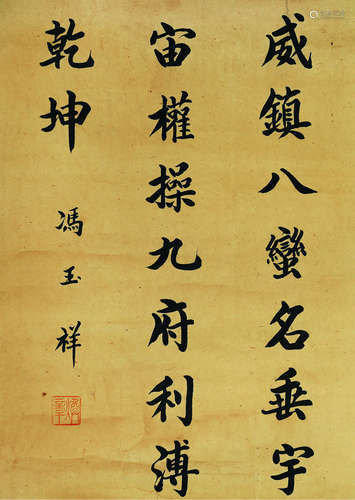 威鎮八蠻名垂宇
宙權操九府利溥
乾坤
馮玉祥